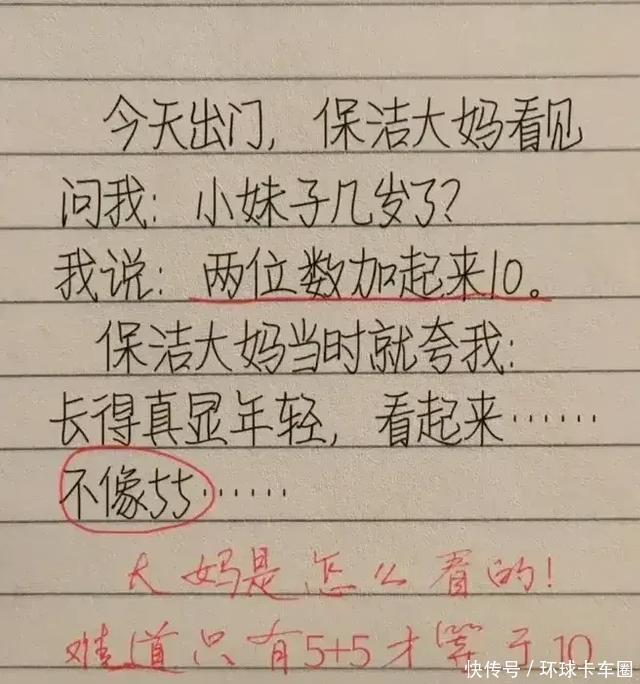 今天出门，保洁大妈看见
问我：小妹子几岁了？
我说：两位数加起来10。
保洁大妈当时就夸我：
长得真显年轻，看起来……
不像55……
大妈是怎么看的！
难道只有5+5才等于10
快传号／环球卡车圈